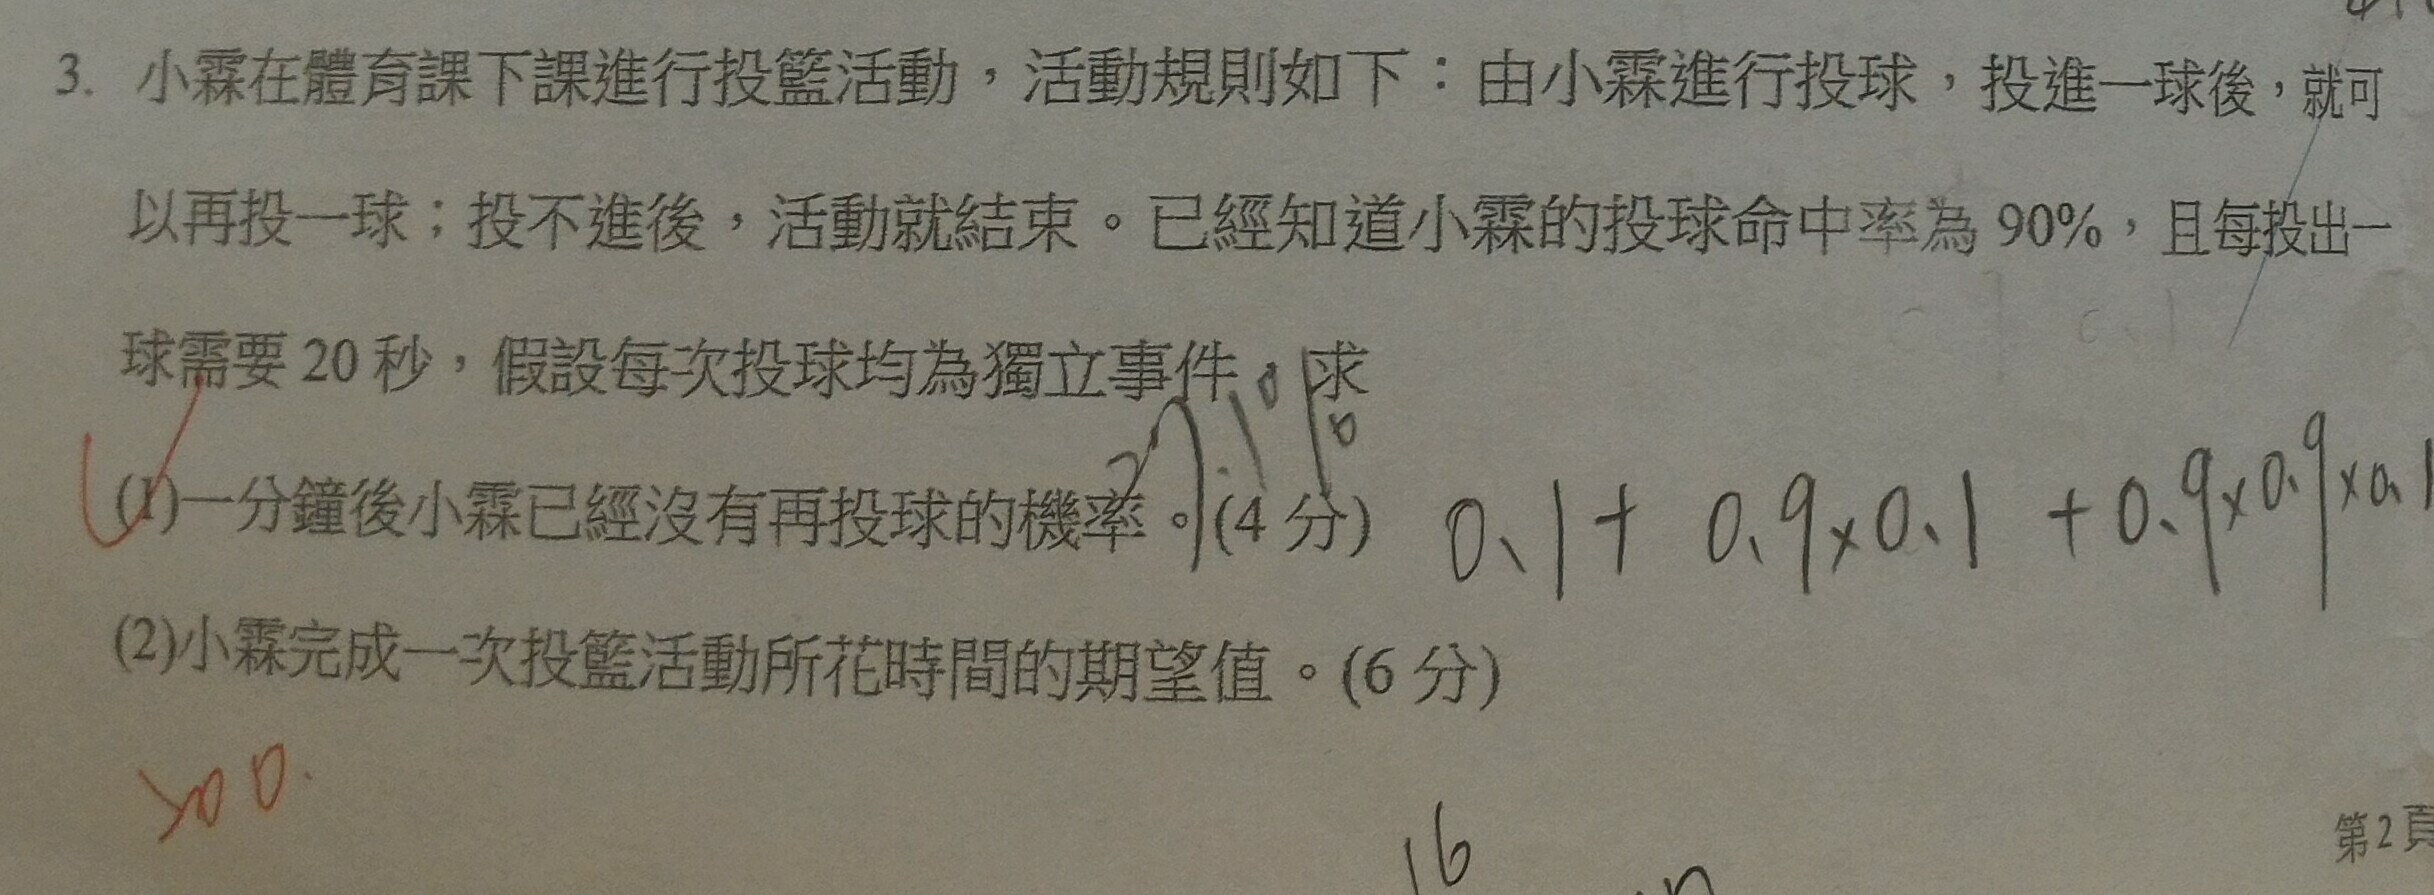 3. 小霖在體育課下課進行投籃活動，活動規則如下：由小霖進行投球，投進一球後，就可
以再投一球；投不進後，活動就結束。已經知道小霖的投球命中率為 90%，且每投出一
球需要 20 秒，假設每次投球均為獨立事件，求
(1)一分鐘後小霖已經沒有再投球的機率。(4 分) 0.1+ 0.9×0.1 +0.9×0.9×0.1
(2)小霖完成一次投籃活動所花時間的期望值。(6 分)
200.
16
第2頁